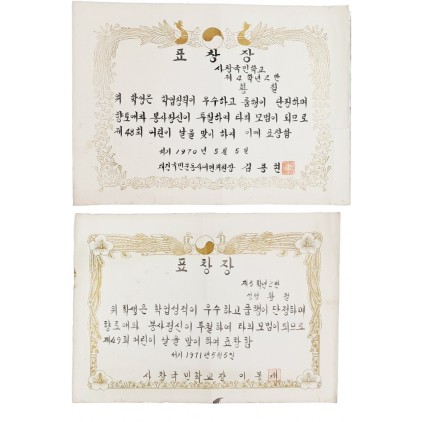 표창장
사창국민학교
제4학년2반
위 학생은 학업성적이 우수하고 품행이 단정하며
향토애와 봉사정신이 투철하여 타의 모범이 되므로
제48회 어린이 날을 맞이하여 이에 표창함
서기 1970년 5월 5일
표창장
제5학년2반
위 학생은 학업성적이 우수하고 품행이 단정하며
향토애와 봉사정신이 투철하여 타의 모범이 되므로
제49회 어린이 날을 맞이하여 표창함
서기 1971년 5월 5일
사창국민학교장